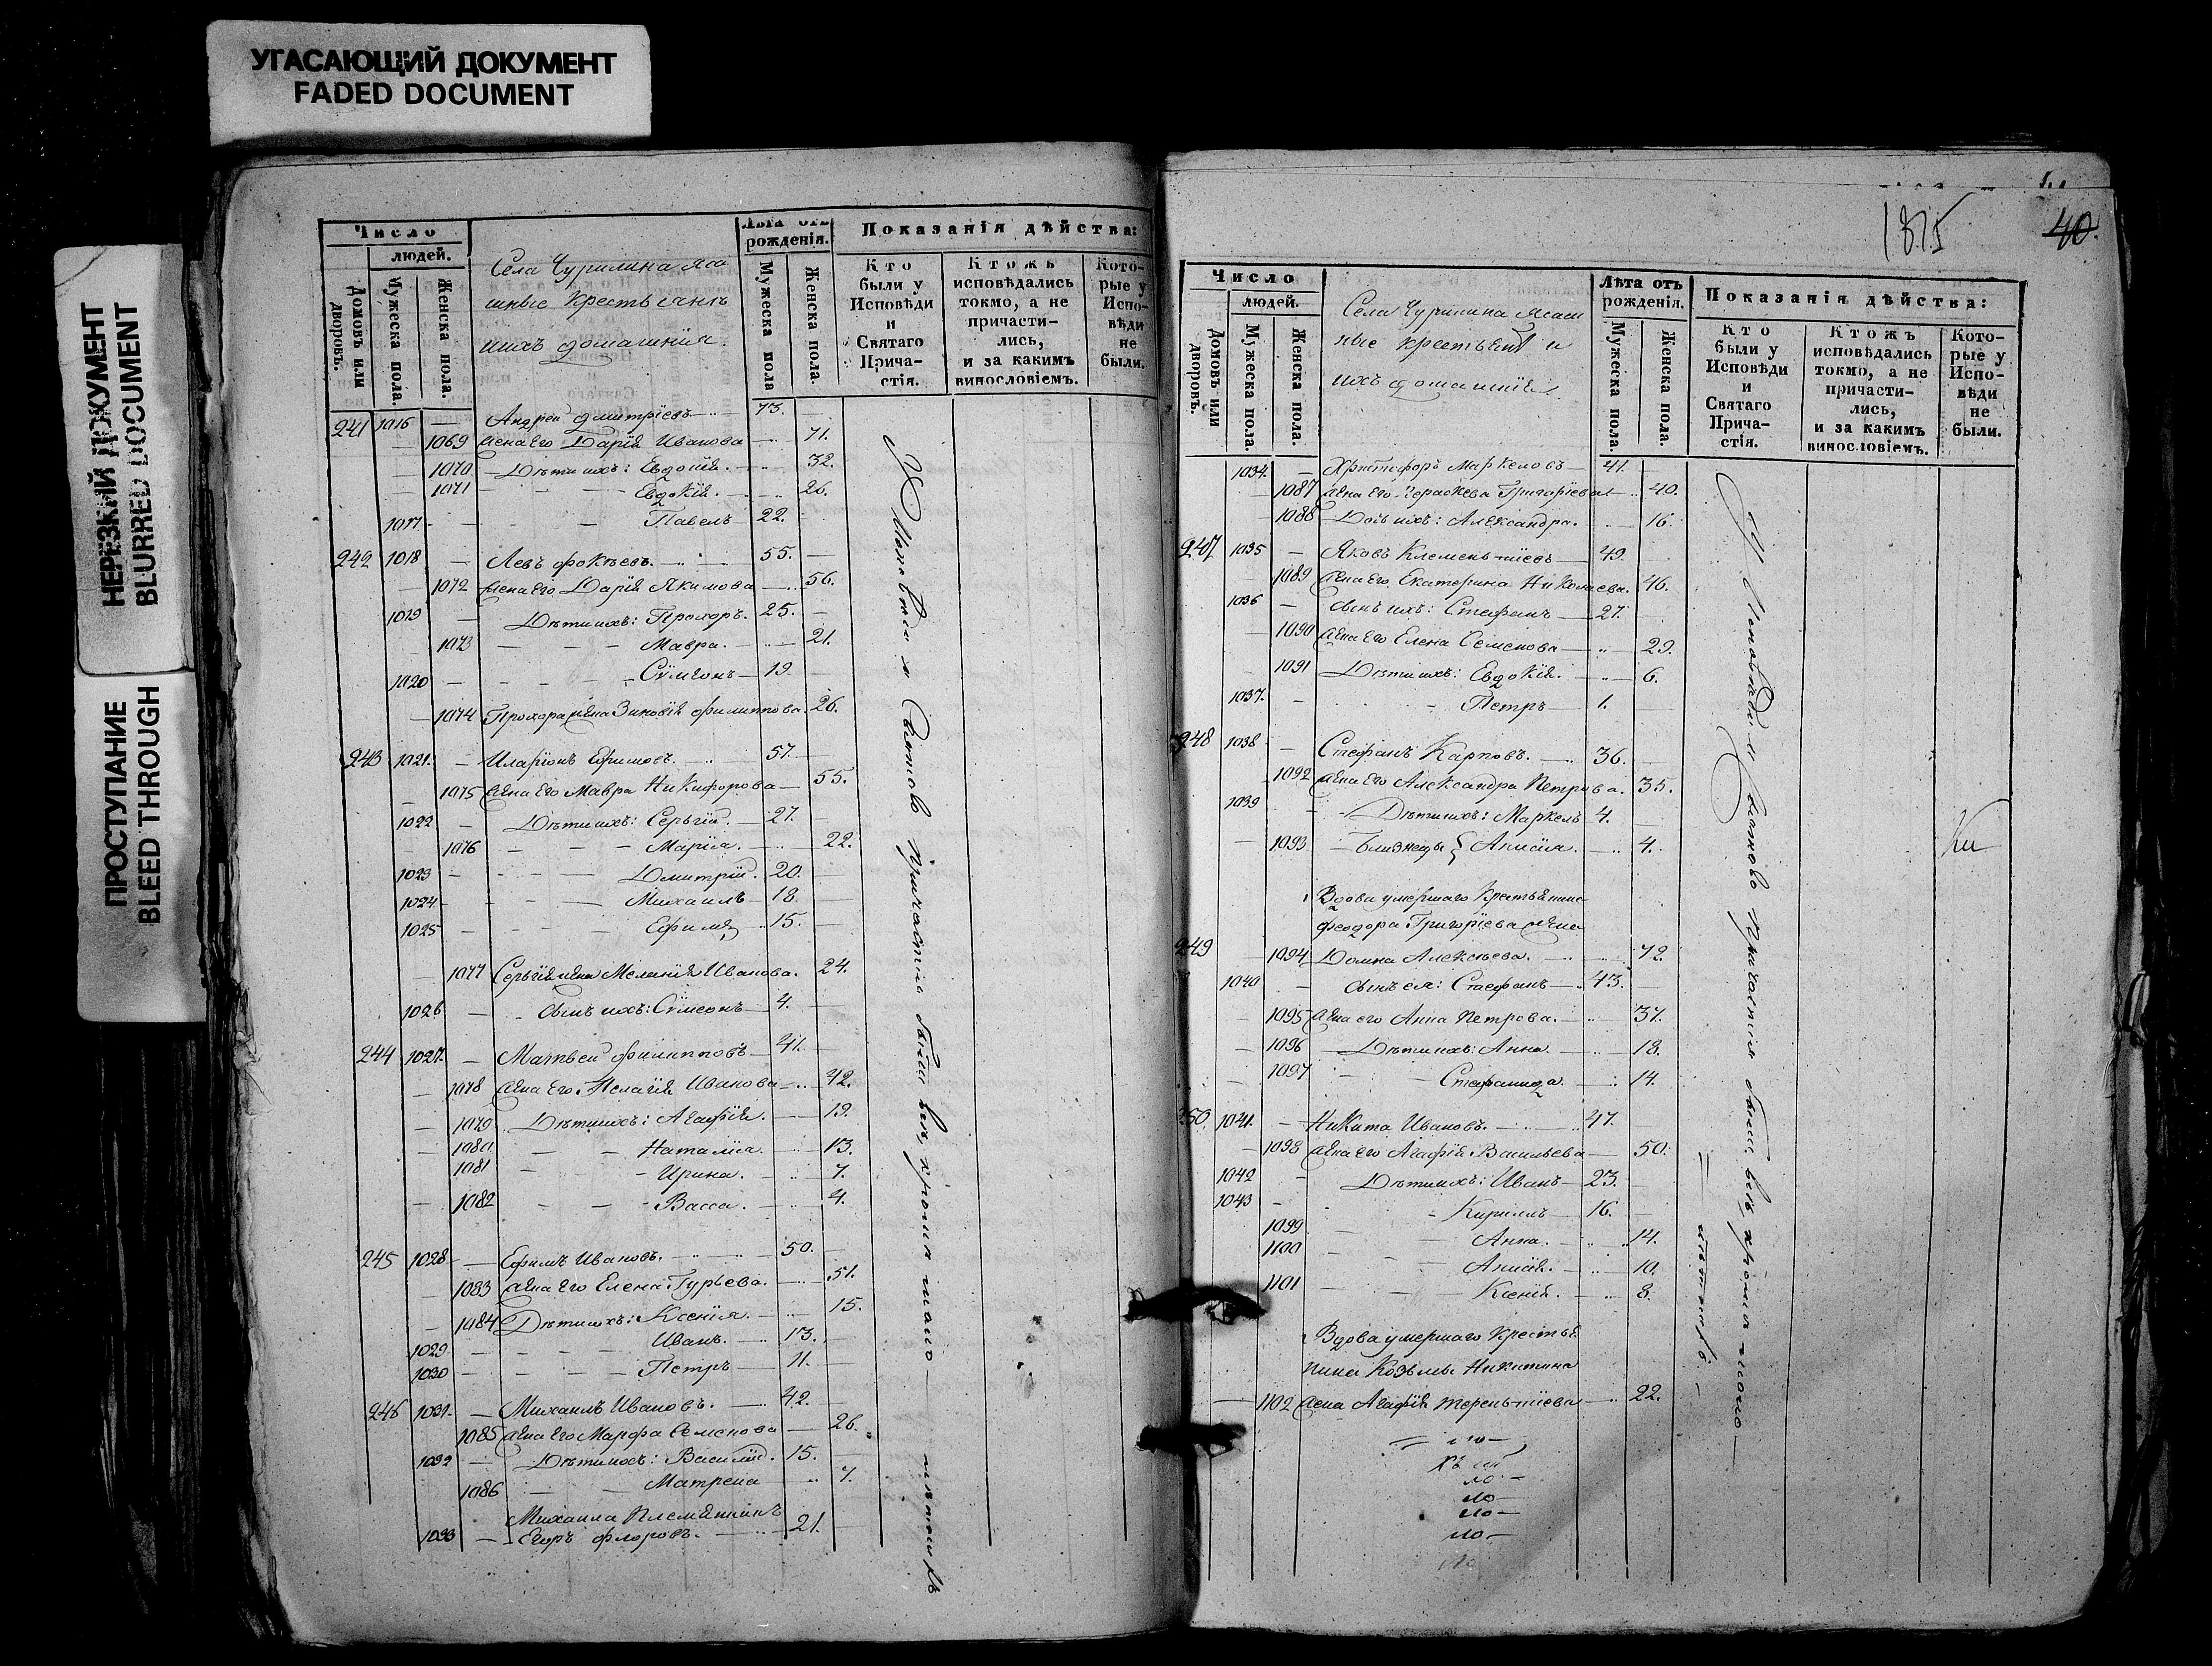 УГАСАЮЩИЙ ДОКУМЕНТ
FADED DOCUMENT
НЕРЕЗКИЙ ДОКУМЕНТ
BLURRED DOCUMENT
ПРОСТУПАНИЕ
BLEED THROUGH
Число
людей.
Домовъ или дворовъ.
Мужеска пола.
Женска пола.
Села Чурилина яса
шные крестьяне
ихъ домашнія.
Лѣта отъ
рожденія.
Мужеска пола
Женска пола.
Показанія дѣйства:
Кто
были у
Исповѣди
и
Святаго
Прича-
стія.
Ктожъ
исповѣдались
токмо, а не
причасти-
лись,
и за какимъ
винословіемъ.
Кото-
рые у
Испо-
вѣди
не
были.
241 1016 — Андрей Дмитріевъ — 73. —
— 1069 жена Его Дарія Иванова — 71.
— 1070 — Дѣти ихъ: Евдокія. — 32.
— 1071 — — — Евдокія. — 26.
1017 — — — Павелъ — 22. —
242 1018 — Левъ Фокѣевъ. — 55. —
— 1072 жена Его Дарія Якимова — 56.
1019 — Дѣти ихъ: Прохоръ. 25. —
1073 — — — Мавра. — 21.
1020 — — — Сѵмеонъ — 19. —
— 1074 Прохора жена Зиновія Филиппова. 26.
243 1021. — Иларіонъ Ефимовъ. — 57. —
— 1075 жена Его Мавра Никифорова — 55.
1022 — Дѣти ихъ: Сергій. — 27. —
— 1076 — — — Марія. — 22.
1023 — — — Дмитрій. 20. —
1024 — — — Михаилъ — 18. —
1025 — — — Ефимъ 15. —
— 1077 Сергія жена Меланія Иванова. 24.
1026 — сынъ ихъ: Сѵмеонъ — 4. —
244 1027. — Матвей Филипповъ — 41. —
— 1078 жена Его Пелагія Иванова — 42.
— 1079 Дѣти ихъ: Агафія. — 19.
— 1080 — — Наталія. — 13.
1081 — — Ирина. — 7.
— 1082 — — Васса. — 4.
245 1028 — Ефимъ Ивановъ. — 50. —
— 1083 жена Его Елена Гурьева. — 51.
— 1084 Дѣти ихъ: Ксенія. — 15.
1029 — — — Иванъ. — 13. —
1030 — — — Петръ — 11. —
246 1031. — Михаилъ Ивановъ. — 42. —
1085 жена Его Марфа Семенова — 26.
1032 — Дѣти ихъ: Василій. 15. —
1086 — — Матрена — 7.
Михаила Племянникъ
1033 — Егоръ Флоровъ. — 21. —
У Исповѣди и Святаго причастія были всѣ, кромѣ мало—
лѣтнихъ
1815
40.
Число
людей.
Домовъ или дворовъ.
Мужеска пола.
Женска пола.
Села Чурилина Ясаш
ные крестьяне и
ихъ домашніе.
Лѣта отъ
рожденія.
Мужеска пола.
Женска пола.
Показанія дѣйства:
Кто
были у
Исповѣди
и
Святаго
Прича-
стія.
Ктожъ
исповѣдались
токмо, а не
причасти-
лись,
и за какимъ
винословіемъ.
Кото-
рые у
Испо-
вѣди
не
были.
1034. — Христофоръ Маркеловъ — 41. —
— 1087 жена Его Параскева Григоріева — 40.
— 1088 — Дочь ихъ: Александра. — 16.
247 1035 — Яковъ Клементіевъ — 49.
1089 жена Его Екатерина Николаева. 46.
1036 — сынъ ихъ: Стефанъ — 27.
— 1090 жена Его Елена Семенова — 29.
— 1091 — Дѣти ихъ: Евдокія. — 6.
1037. — — Петръ — 1. —
248 1038 — Стефанъ Карповъ. — 36. —
1092 жена Его Александра Петрова. 35.
1039 — Дѣти ихъ: Маркелъ 4. —
— 1093 — Близнецы { Анисія. — 4.
Вдова умершаго Крестьянина
Феодора Григоріева жена
249 — 1094 Домна Алексѣева. — 72.
1040 — сынъ ея: Стефанъ — 43. —
— 1095 жена его Анна Петрова. — 37.
— 1096 — Дѣти ихъ: Анна. — 18.
— 1097 — — Стефанида. — 14.
250. 1041. — Никита Ивановъ. — 47. —
— 1098 жена Его Агафія Васильева — 50.
1042 — Дѣти ихъ: Иванъ — 23. —
1043 — — Кириллъ — 16. —
1099 — — Анна. — 14.
1100 — — Анисія. — 10.
1101 — — Ксенія. — 8.
Вдова умершаго Крестья
нина Козьмы Никитина
— 1102 жена Агафія Терентіева — 22.
У Исповѣди и Святаго причастія были всѣ, кромѣ мало—
лѣтнихъ. —